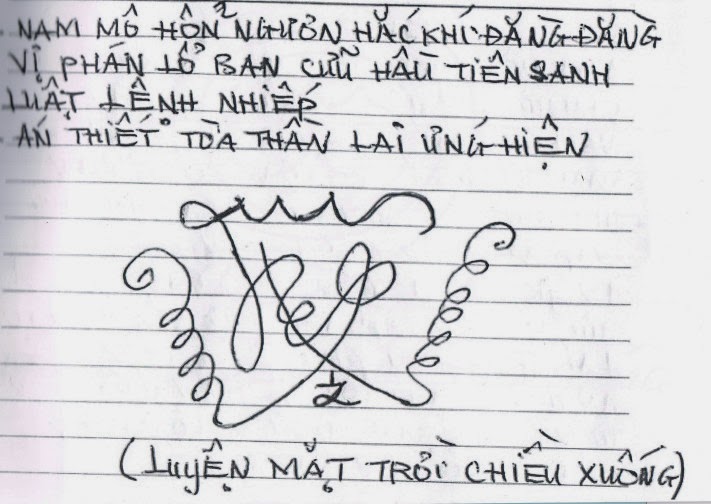 NAM MÔ HỖN NGƯƠN HẮC KHÍ ĐĂNG ĐĂNG
VỊ PHÁN LỔ BAN CỬU HẬU TIÊN SANH
LUẬT LỆNH NHIẾP
ÁN THIẾT TÒA THẦN LAI ỨNG HIỆN
(LUYỆN MẶT TRỜI CHIỀU XUỐNG)